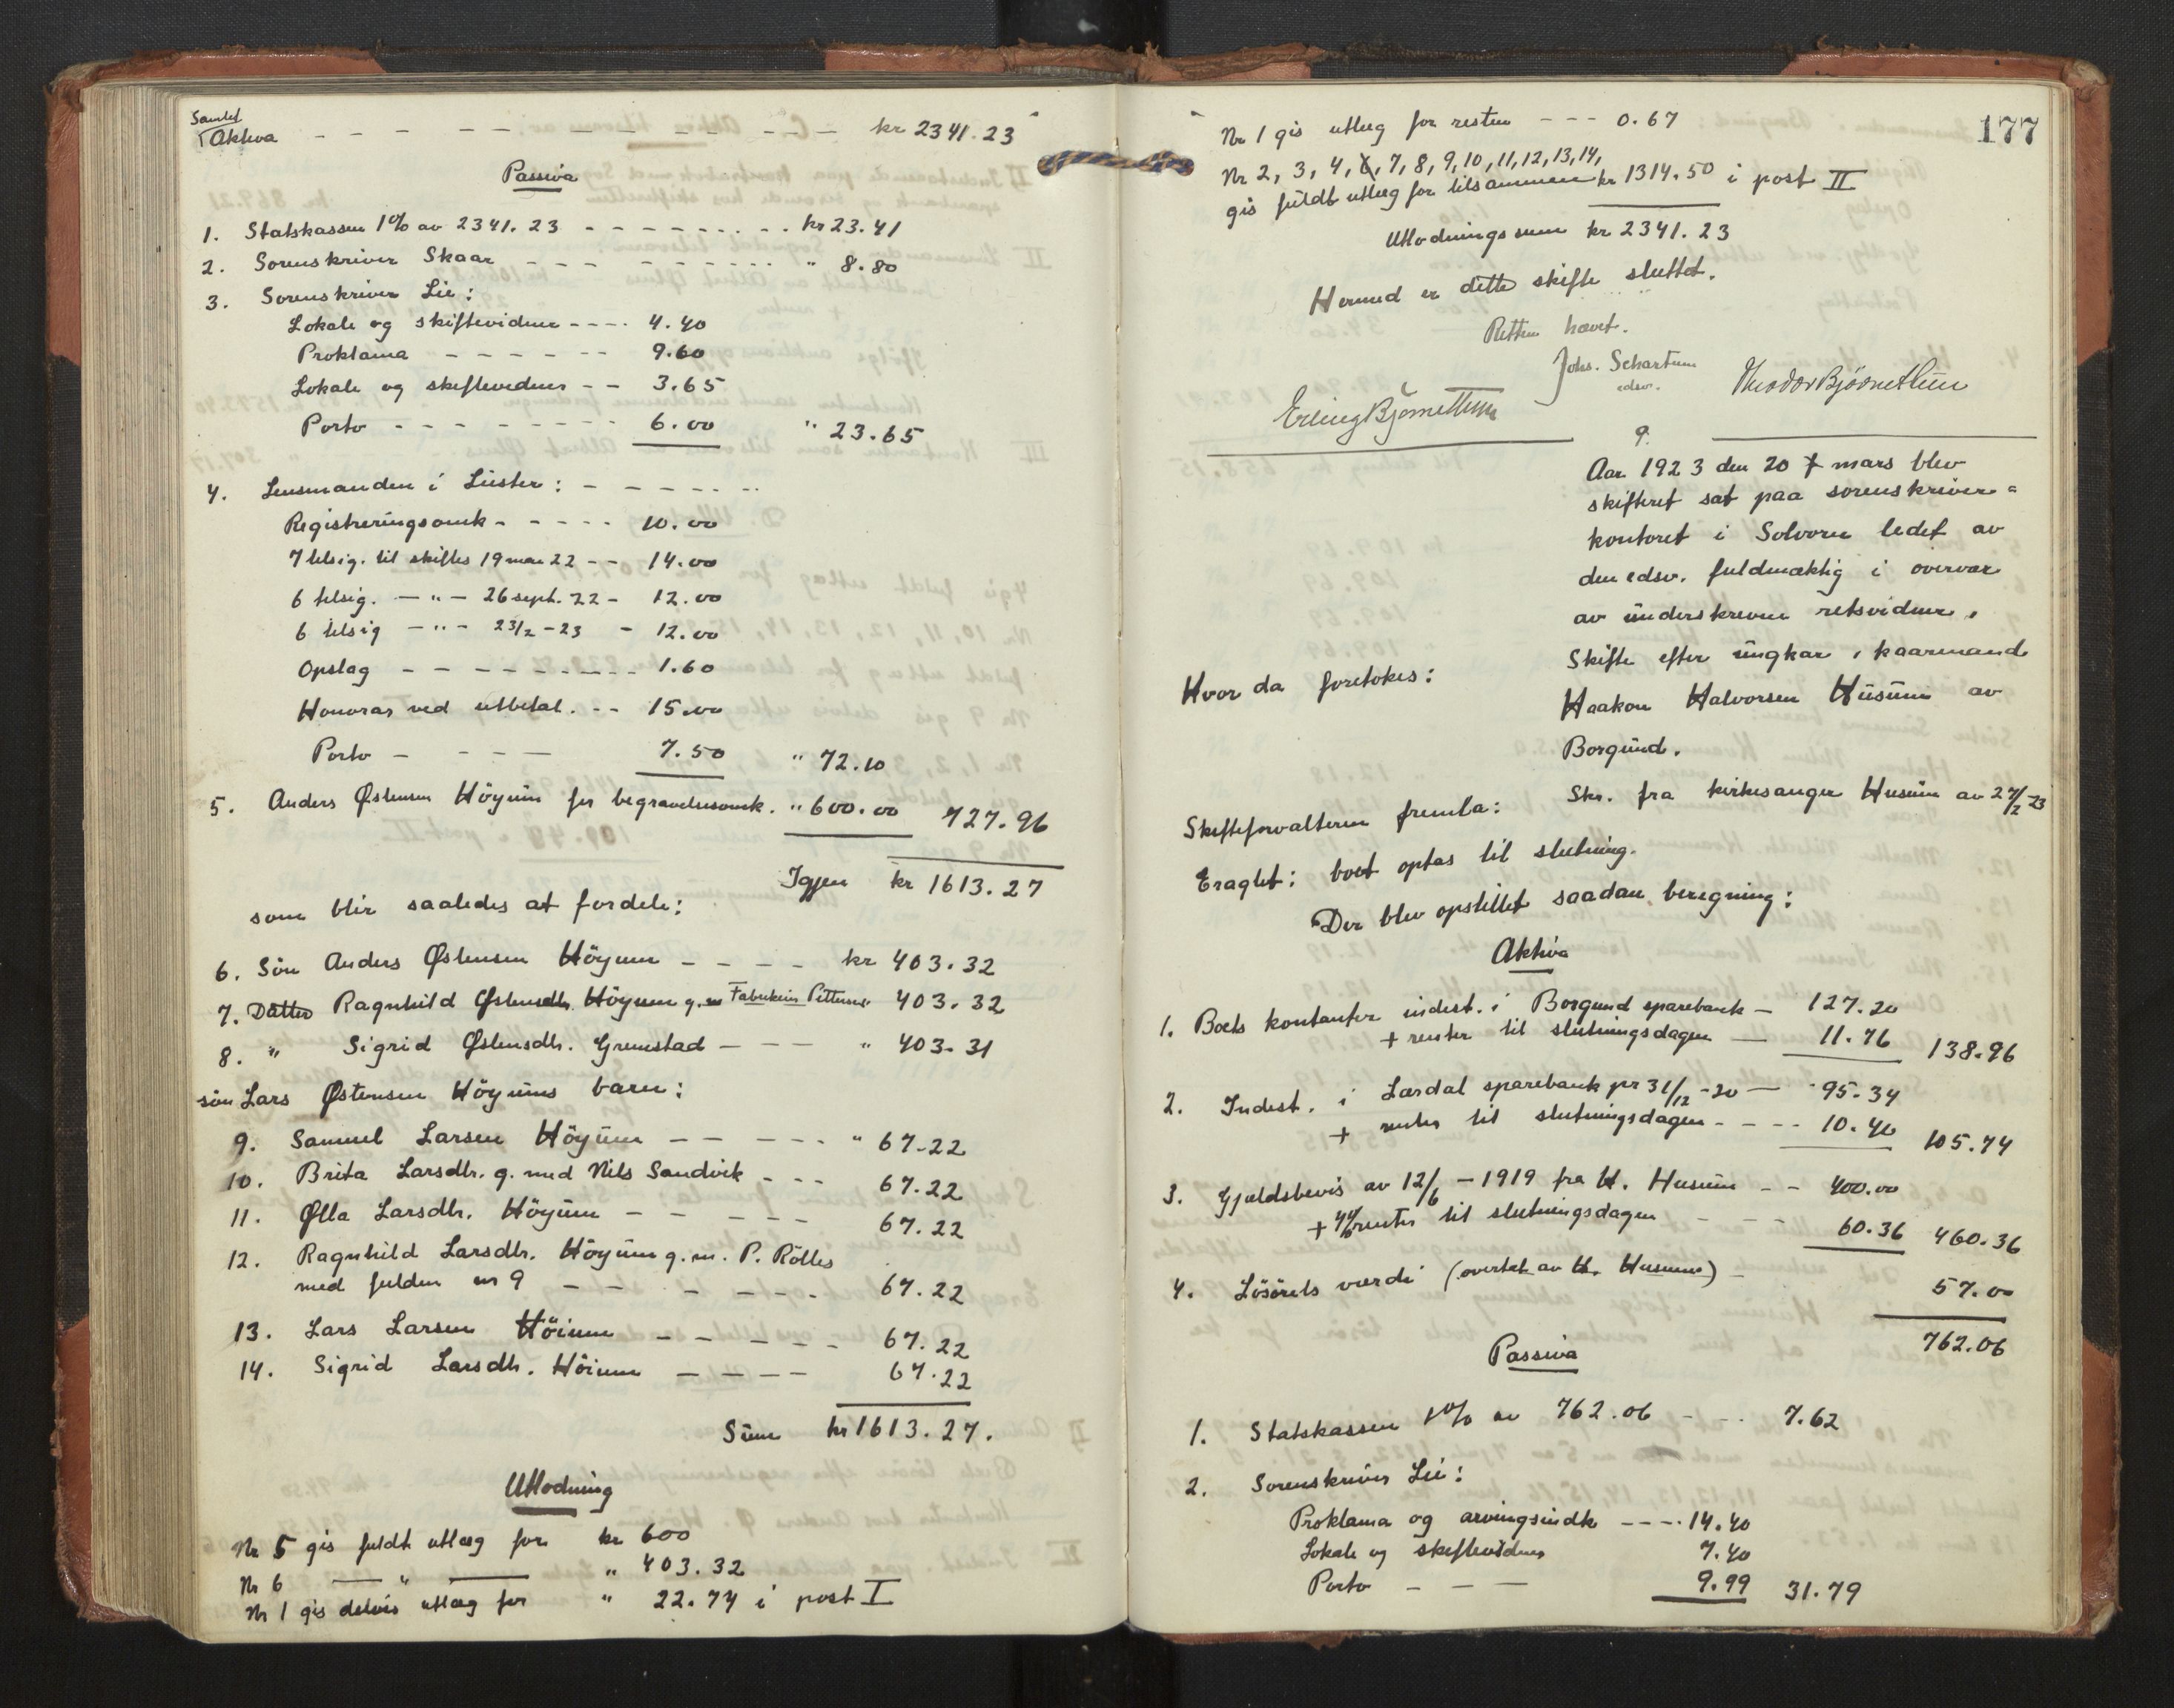 Samlet
Aktiva - - - - - - - - - - kr 2341.23
Passiva
1. Statskassen 1% av 2341.23 - - - - - - - kr 23.41
2. Sorenskriver Skaar - - - - - - - - " 8.80
3. Sorenskriver Lie:
Lokale og skiftevidner - - - - 4.40
Proklama - - - - - - 9.60
Lokale og skiftevidner - - 3.65
Porto - - - - - - - - 6.00 " 23.65
4. Lensmanden i Luster: - - - - - -
Registreringsomk - - - - - 10.00
7 tilsig. til skiftes 19 mai 22 - - 14.00
6 tilsig. — " — 26 sept. 22 - 12.00
6 tilsig — " — 23/2 - 23 - 12.00
Opslag - - - - - - - - - 1.60
Honorar ved utbetal. - - 15.00
Porto - - - - 7.50 " 72.10
5. Anders Østensen Höyum for begravelsesomk. " 600.00 727.96
Igjen kr 1613.27
som blir saaledes at fordele:
6. Sön Anders Østensen Höyum - - - - kr 403.32
7. Datter Ragnhild Østensdtr. Höyum g. m Fabrikeier Pettersen 403.32
8. " Sigrid Østensdtr. Grimstad - - - - " 403.31
sön Lars Østensen Höyums barn:
9. Samuel Larsen Höyum - - - - - " 67.22
10. Brita Larsdtr. g. med Nils Sandvik - - - 67.22
11. Ølla Larsdtr. Höyum - - - - - 67.22
12. Ragnhild Larsdtr. Höyum g. m. P. Rölles
med fulden nr 9 - - - - - - 67.22
13. Lars Larsen Höium - - - - - - 67.22
14. Sigrid Larsdtr. Höium - - - - 67.22
Sum kr 1613.27.
Utlodning
Nr 5 gis fuldt utlæg for kr 600
Nr 6 — " — " 403.32
Nr 1 gis delvis utlæg for " 22.74 i post I
177
Nr 1 gis utlæg for resten - - - 0.67
Nr 2, 3, 4, 6, 7, 8, 9, 10, 11, 12, 13, 14,
gis fuldt utlæg for tilsammen kr 1314.50 i post II
Utlodningssum kr 2341.23
Hermed er dette skifte sluttet.
Retten hævet.
Johs. Schartum
edsv.
Erling Bjørnethun Theodor Bjørnethun
9.
Aar 1923 den 20 mars blev
skifteret sat paa sorenskriver=
kontoret i Solvorn ledet av
den edsv. fuldmæktig i overvær
av underskrevne retsvidner,
Hvor da foretokes: Skifte efter ungkar, kaarmand
Haakon Halvorsen Husum av
Borgund.
Skifteforvalteren fremla: Skr. fra kirkesanger Husum av 27/2-23
Eragtet: boet optas til slutning.
Der blev opstillet saadan beregning:
Aktiva
1. Boets kontanter indest. i Borgund sparebank - 127.20
+ renter til slutningsdagen — 11.76 138.96
2. Indest. i Lærdal sparebank pr 31/12 - 20 — 95.34
+ renter til slutningsdagen - - - - 10.40 105.74
3. Gjældsbevis av 12/6 - 1919 fra H. Husum - - 400.00
+ 4% renter til slutningsdagen - - - 60.36 460.36
4. Lösörets værdi (overtat av H. Husum) - 57.00
762.06
Passiva
1. Statskassen 1% av 762.06 - - - 7.62
2. Sorenskriver Lie:
Proklama og arvingsindk - - - - 14.40
Lokale og skiftevidner 7.40
Porto - - - 9.99 31.79